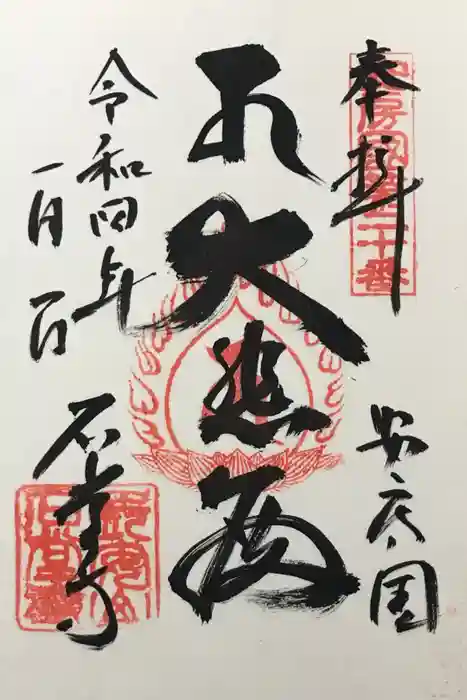 奉拝
安房国第二十番
安房国
大悲殿
令和四年
一月一日
石堂寺